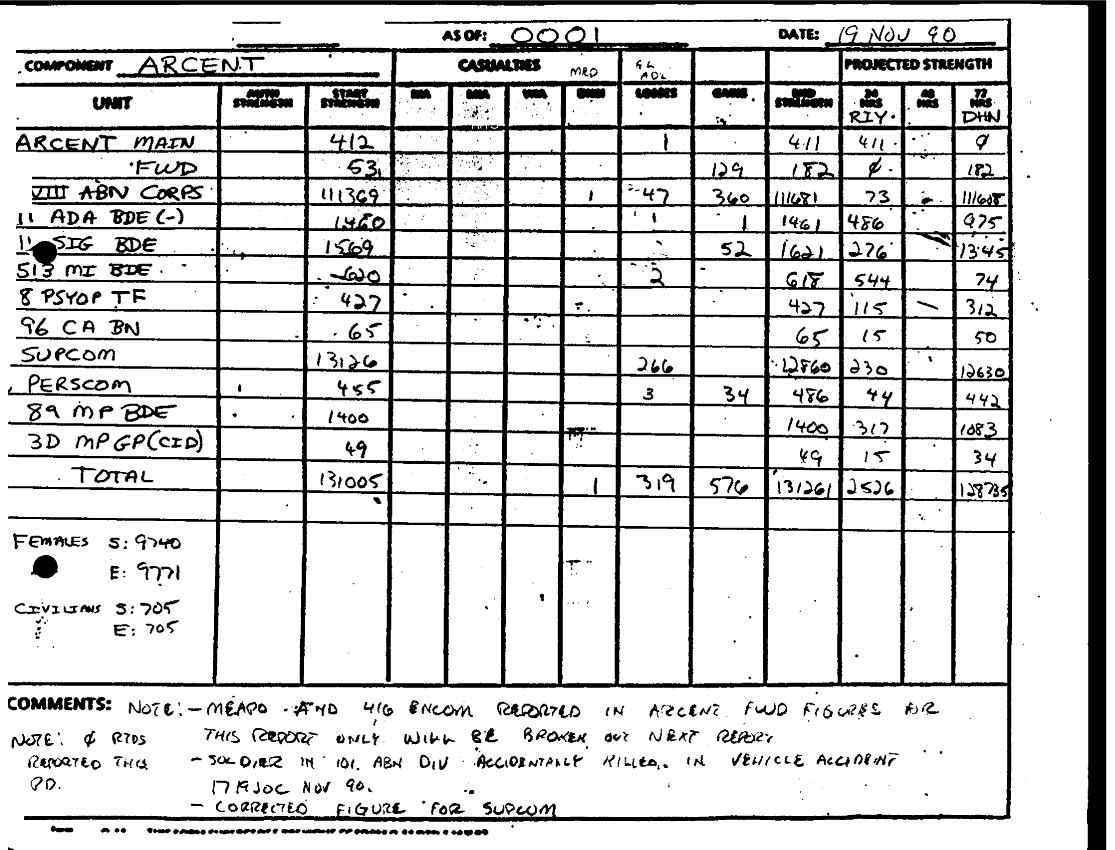 AS OF: 0001 DATE: 19 NOV 90
COMPONENT ARCENT CASUALTIES MED PROJECTED STRENGTH
UNIT AUTH STRENGTH START STRENGTH KIA MIA WIA LOSSES GAINS END STRENGTH 24 HRS 48 HRS 72 HRS
RIY. DHN
ARCENT MAIN 412 1 411 411 ∅
FWD 53 129 182 ∅ 182
VIII ABN CORPS 111369 1 47 360 111681 73 111608
11 ADA BDE (-) 1460 1 1461 486 975
11 SIG BDE 1569 52 1621 276 1345
513 MI BDE 620 2 618 544 74
8 PSYOP TF 427 427 115 312
96 CA BN 65 65 15 50
SUPCOM 13126 266 12860 230 12630
PERSCOM 455 3 34 486 44 442
89 MP BDE 1400 1400 317 1083
3D MP GP (CID) 49 49 15 34
TOTAL 131005 1 319 576 131261 2526 128735
FEMALES S: 9740
E: 9771
CIVILIANS S: 705
E: 705
COMMENTS: NOTE: - MEAPO AND 416 ENCOM REPORTED IN ARCENT FWD FIGURES FOR
THIS REPORT ONLY WILL BE BROKEN OUT NEXT REPORT
NOTE: ∅ RTDS
REPORTED THIS
PD.
- SOLDIER IN 101. ABN DIV ACCIDENTALLY KILLED. IN VEHICLE ACCIDENT
NOV 90.
- CORRECTED FIGURE FOR SUPCOM